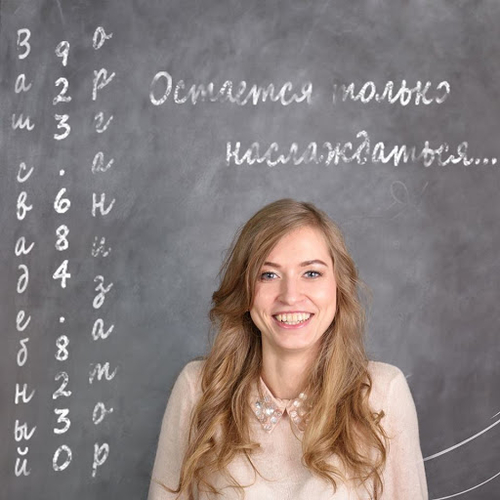 Ваш свадебный
923.684.8230
организатор
Остается только
наслаждаться...